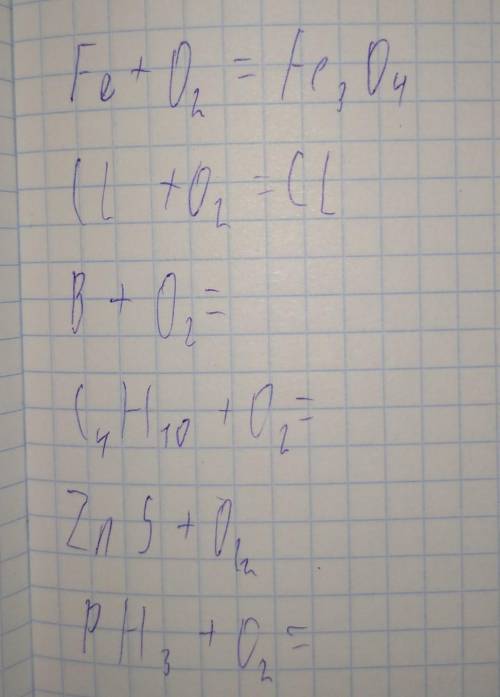 Fe + O₂ = Fe₃O₄
Cl + O₂ = Cl
B + O₂ =
C₄H₁₀ + O₂ =
ZnS + O₂
PH₃ + O₂ =